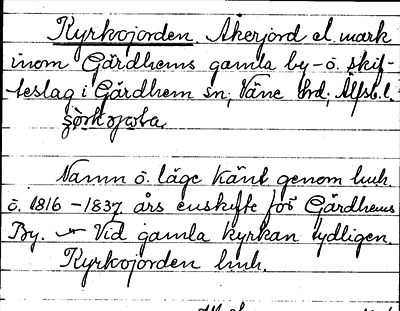 Kyrkojorden. Åkerjord el. mark
inom Gärdhems gamla by- o. skif-
teslag i Gärdhem sn, Väne hd, Älfsb. l.
Namn o. läge känt genom hmh.
o. 1816-1837 års enskifte för Gärdhems
By. — Vid gamla kyrkan tydligen.
Kyrkojorden hmh.